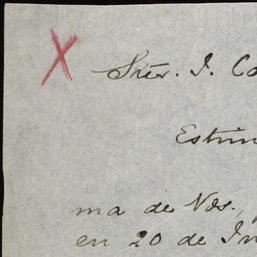 X
Sres. I. Co
Estim
ma de Vds.,
en 20 de